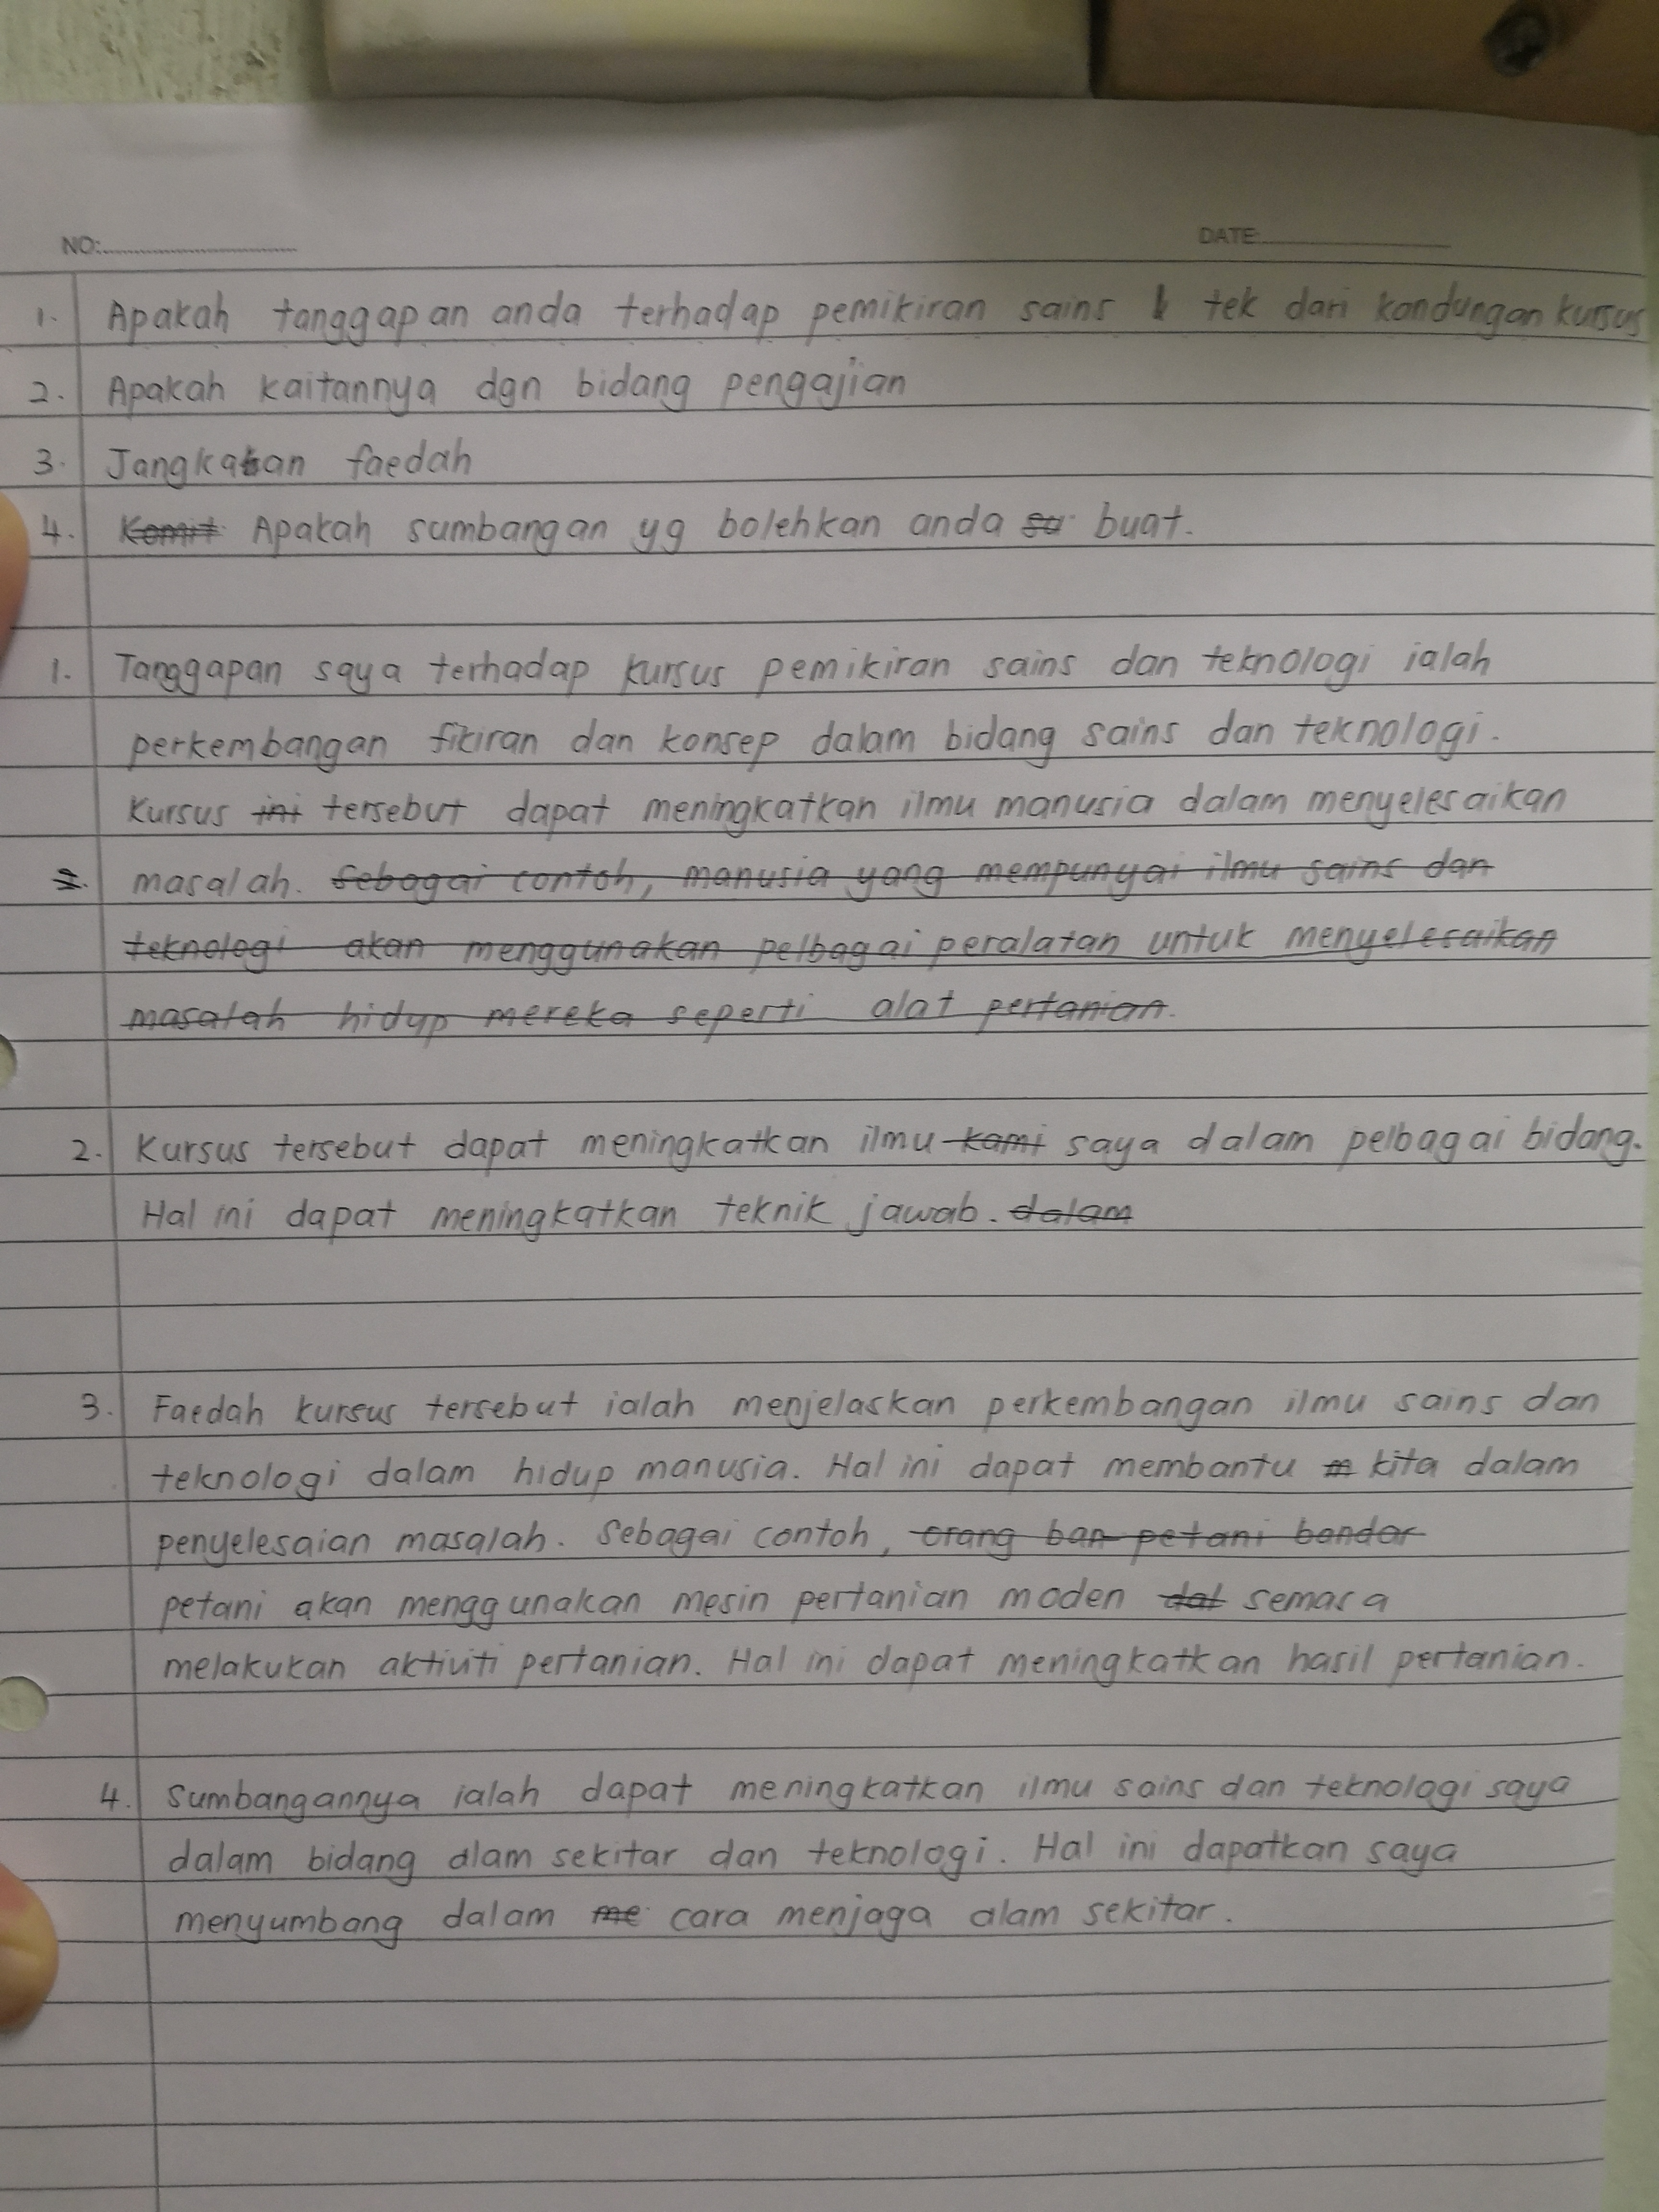 NO:
DATE:
1. Apakah tanggapan anda terhadap pemikiran sains & tek dari kandungan kursus
2. Apakah kaitannya dgn bidang pengajian
3. Jangkaan faedah
4. Komit Apakah sumbangan yg bolehkan anda su buat.
1. Tanggapan saya terhadap kursus pemikiran sains dan teknologi ialah
perkembangan fikiran dan konsep dalam bidang sains dan teknologi.
Kursus ini tersebut dapat meningkatkan ilmu manusia dalam menyelesaikan
2. masalah. Sebagai contoh, manusia yang mempunyai ilmu sains dan
teknologi akan menggunakan pelbagai peralatan untuk menyelesaikan
masalah hidup mereka seperti alat pertanian.
2. Kursus tersebut dapat meningkatkan ilmu kami saya dalam pelbagai bidang.
Hal ini dapat meningkatkan teknik jawab. dalam
3. Faedah kursus tersebut ialah menjelaskan perkembangan ilmu sains dan
teknologi dalam hidup manusia. Hal ini dapat membantu m kita dalam
penyelesaian masalah. Sebagai contoh, orang ban petani bandar
petani akan menggunakan mesin pertanian moden dal semasa
melakukan aktiviti pertanian. Hal ini dapat meningkatkan hasil pertanian.
4. Sumbangannya ialah dapat meningkatkan ilmu sains dan teknologi saya
dalam bidang alam sekitar dan teknologi. Hal ini dapatkan saya
menyumbang dalam me cara menjaga alam sekitar.